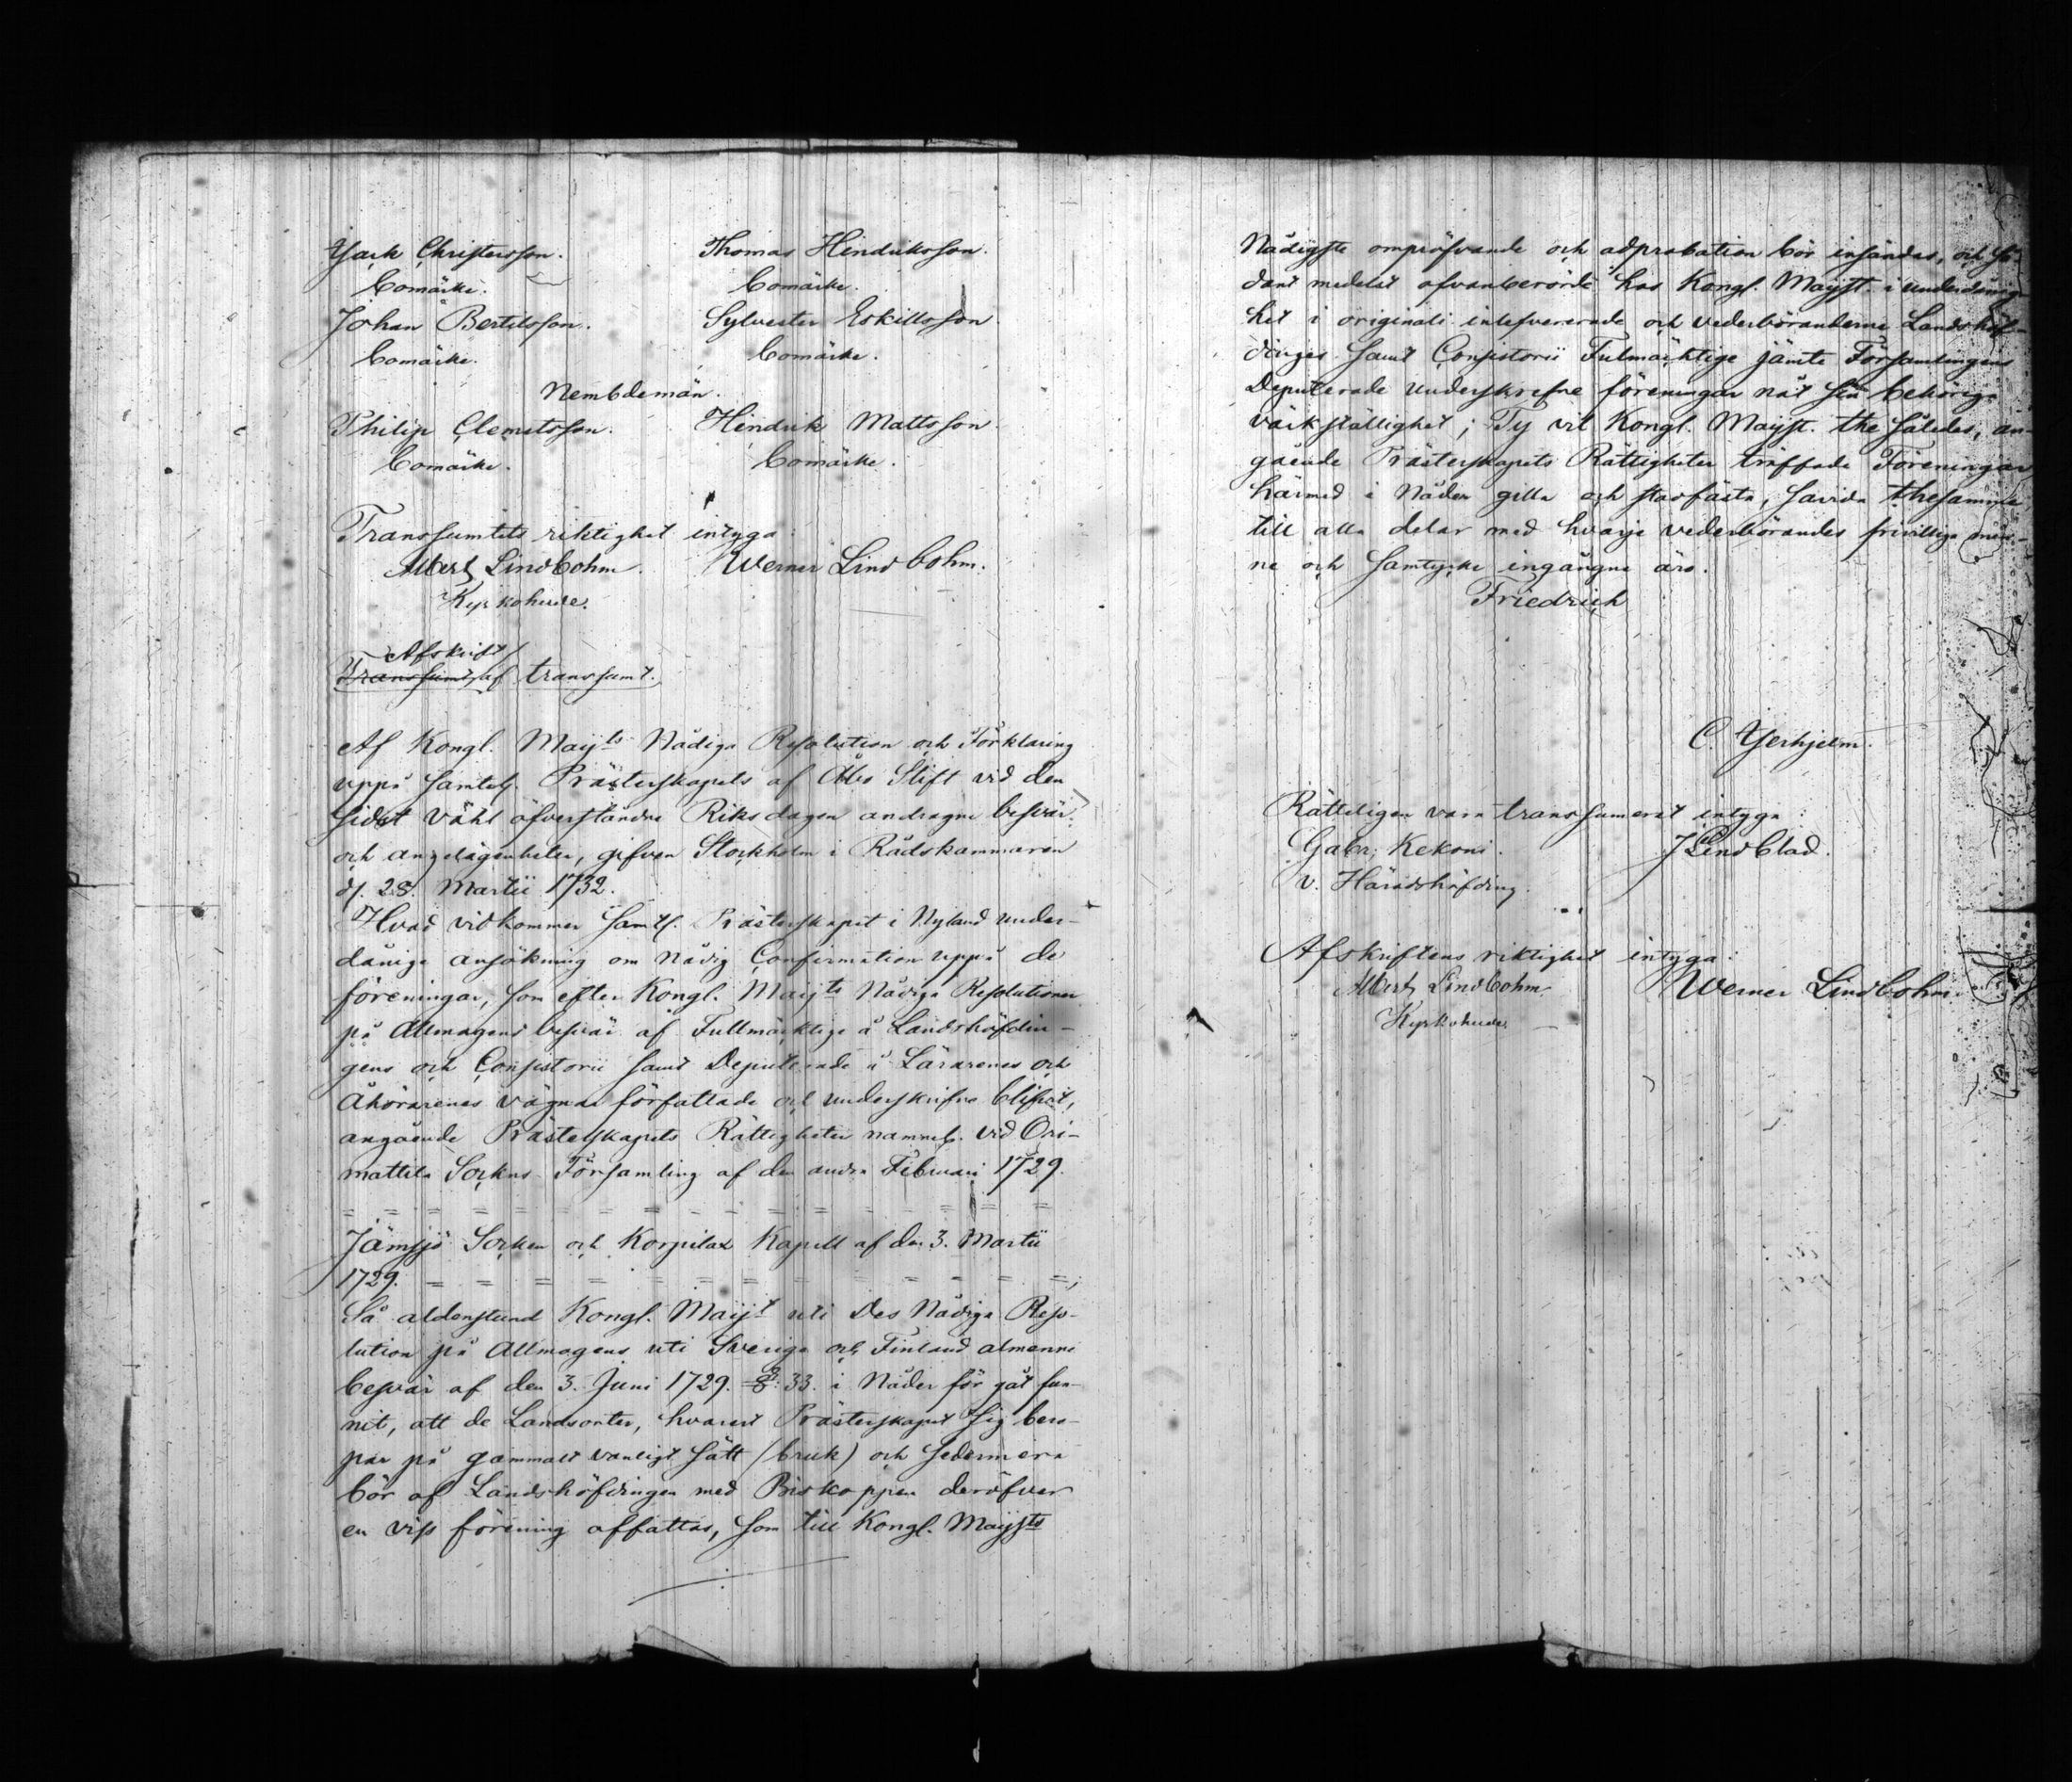 Christersson. Thomas Hindriksson.
Bomärke. Bomärke.
Johan Bertilsson. Sylvester Eskillsson
Bomärke. Bomärke.
Nembdemän.
Philip Clemetsson. Hindrik Mattsson.
Bomärke. Bomärke.
Transsumtets riktighet intyga:
Albert Lindbohm. Werner Lindbohm.
Kyrkoherde.
Afskrift
Transsumt af transsumt.
Af Kongl. Maijts Nådiga Resolution och Förklaring
uppå samtel. Prästerskapets af Åbo Stift vid den
sidst vähl öfverståndne Riksdagen andragne besvär
och angelägenheter, gifven Stockholm i Rådskammaren
d. 28. Martii 1732.
Hvad vidkommer samtl. Prästerskapet i Nyland under-
dåniga ansökning om nådig Confirmation uppå de
föreningar, som efter Kongl. Maijts Nådiga Resolutioner
på Allmogens besvär af Fullmäktige å Landshöfdin-
gens och Consistorii samt Deputerade å Lärarenes och
Åhörarenes vägnar författade och underskrifne blifvit,
angående Prästerskapets Rättigheter nammel. vid Ori-
mattila Sockns Församling af den andra Februari 1729.
= = = = = = = = = = = = = =
Jämsjö Socken och Korpilax Kapell af den 3. Martii
1729. = = = = = = = = = = = =;
Så aldenstund Kongl. Maijt uti Des Nådiga Reso-
lution på Allmogens uti Sverige och Finland almenne
besvär af den 3. Juni 1729. §: 33. i Nåder för gåt fun-
nit, att de Landsorter, hvarest Prästerskapet sig bero-
par på gammalt vanligt sätt (bruk) och sedermera
bör af Landshöfdingen med Biskoppen deröfver
en viss förening affattas, som till Kongl. Maijsts
Nådigste ompröfvande och adprobation bör insändas, och så-
dant medelst ofvanberörde hos Kongl. Maijst. i underdånig-
het i originali inlefvererade och vederböranderne Landshöf-
dinges samt Consistorii Fulmäktige jämte Församlingens
Deputerade underskrefne föreningar nåt sin behöriga
värkställighet; Ty vil Kongl. Maijst. the således, an-
gående Prästerskapets Rättigheter träffade Föreningar
härmed i Nåder gilla och stadfästa, såvida thesamma
till alla delar med hvarje vederbörandes frivilliga min-
ne och samtycke ingångne äro.
Friedrich
C. Yerhjelm.
Rätteligen vara transsumerat intyga:
Gabr. Kekoni. J Lindblad.
v. Häradshöfding.
Afskriftens riktighet intyga:
Albert Lindbohm Werner Lindbohm.
Kyrkoherde.